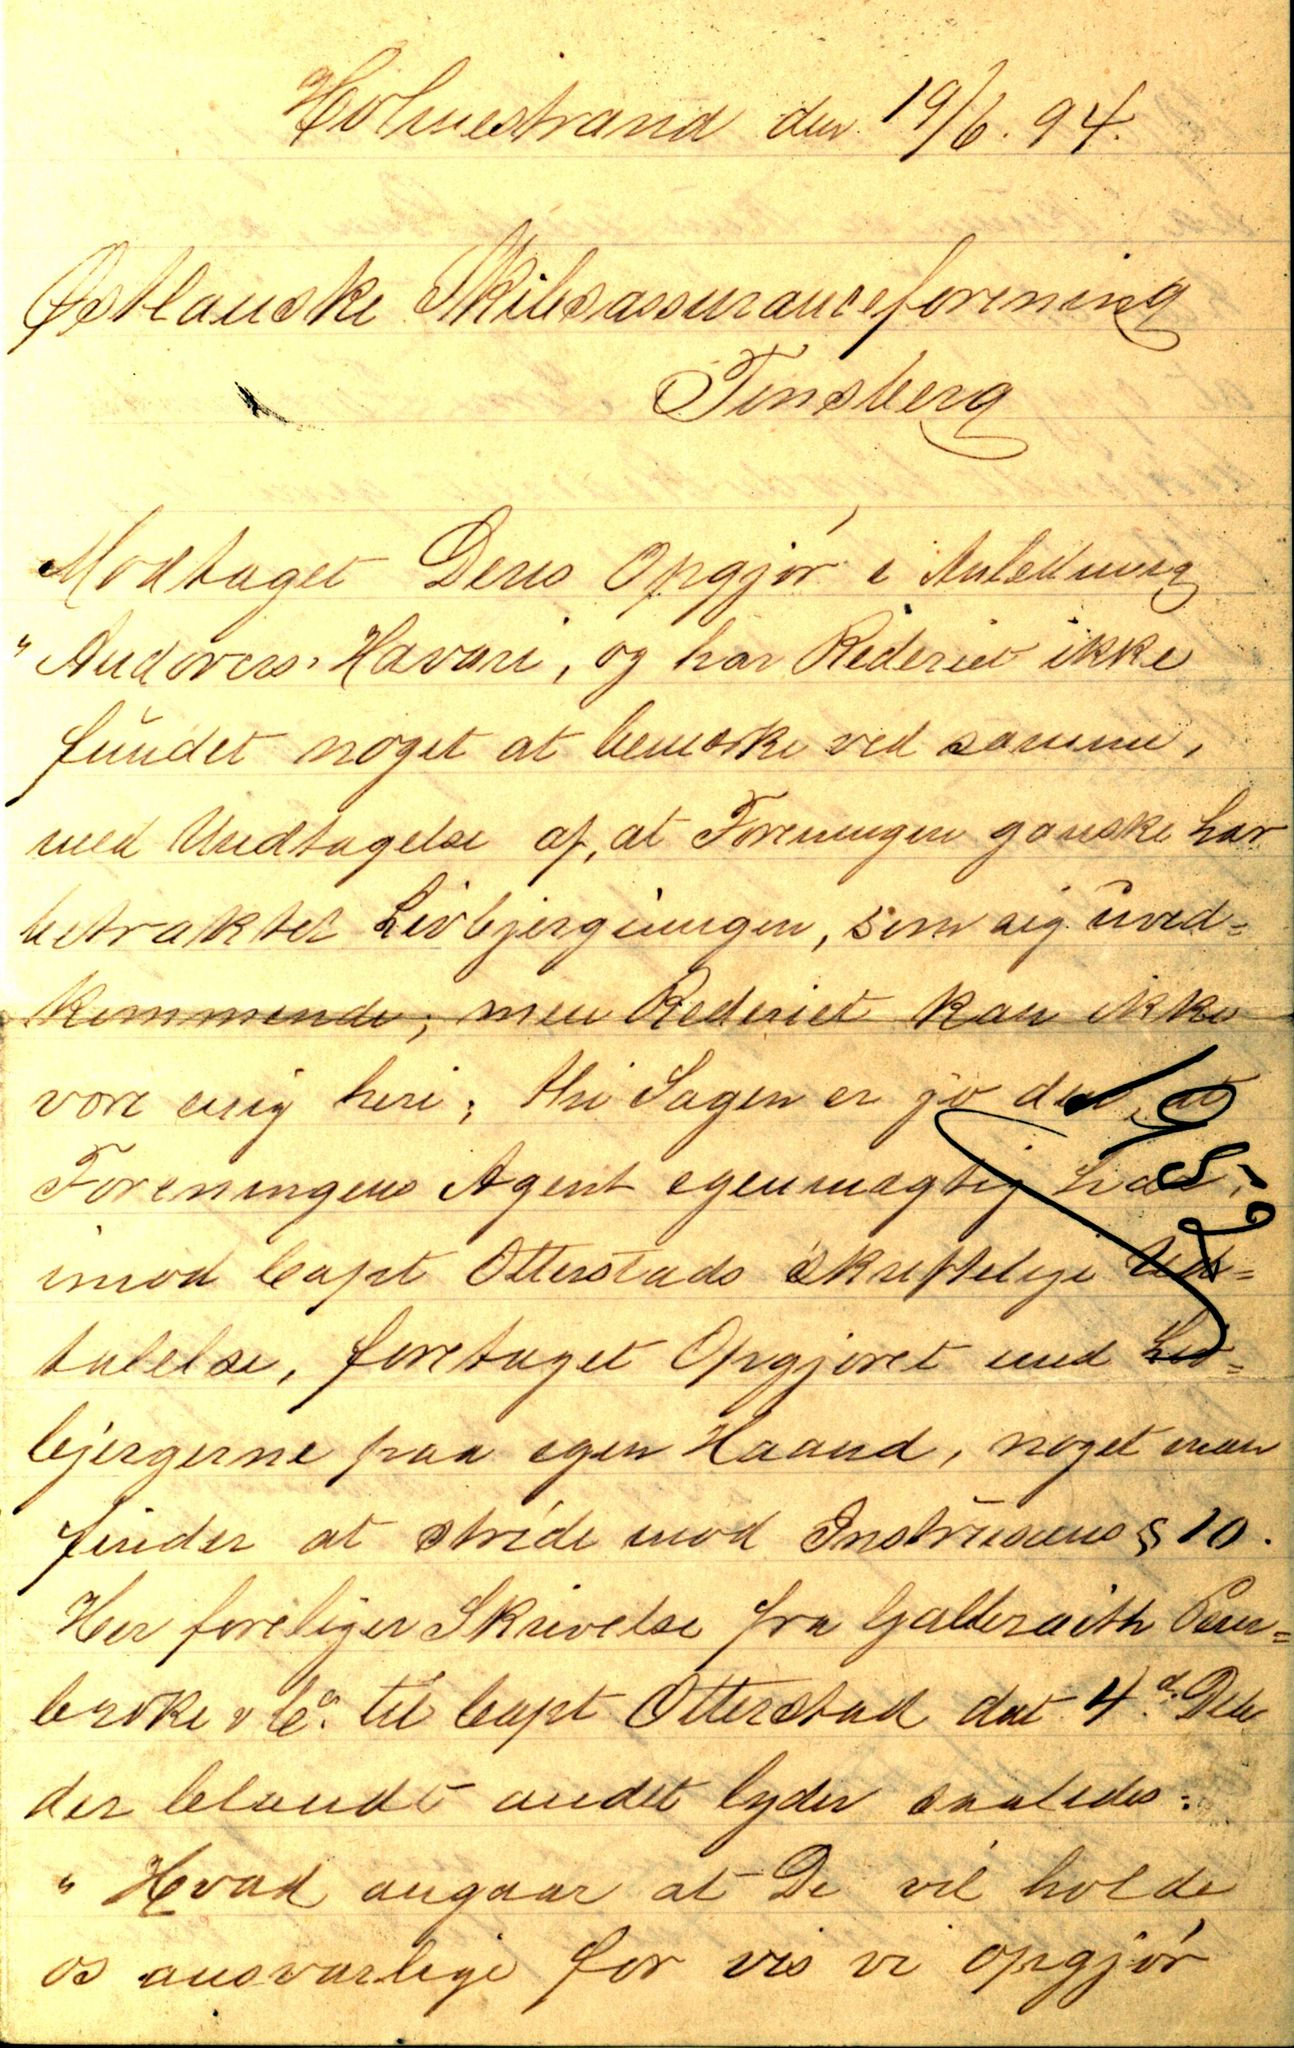 Holmestrand den 19/6. 94.
Østlanske Skibsassuranceforening
Tønsberg
Modtaget Deres Opgjør i Anledning
"Andovers" Havari, og har Rederiet ikke
fundet noget at bemærke ved samme,
med Undtagelse af, at Foreningen ganske har
betraktet Livbjergningen, som sig uved-
kommende; men Rederiet kan ikke
være enig heri; thi Sagen er jo den, at
Foreningens Agent egenmægtig har,
imod Capt Otterstads skriftelige Ud-
talelse, foretaget Opgjøret med Liv-
bjergerne paa egen Haand, noget man
finder at stride mod Instruxens § 10.
Her foreliger Skrivelse fra Galbraith Pem-
broke & Co. til Capt Otterstad dat 4d. Dcbr
der blandt andet lyder saaledes:
" Hvad angaar at De vil holde
os ansvarlige for vis vi opgjør